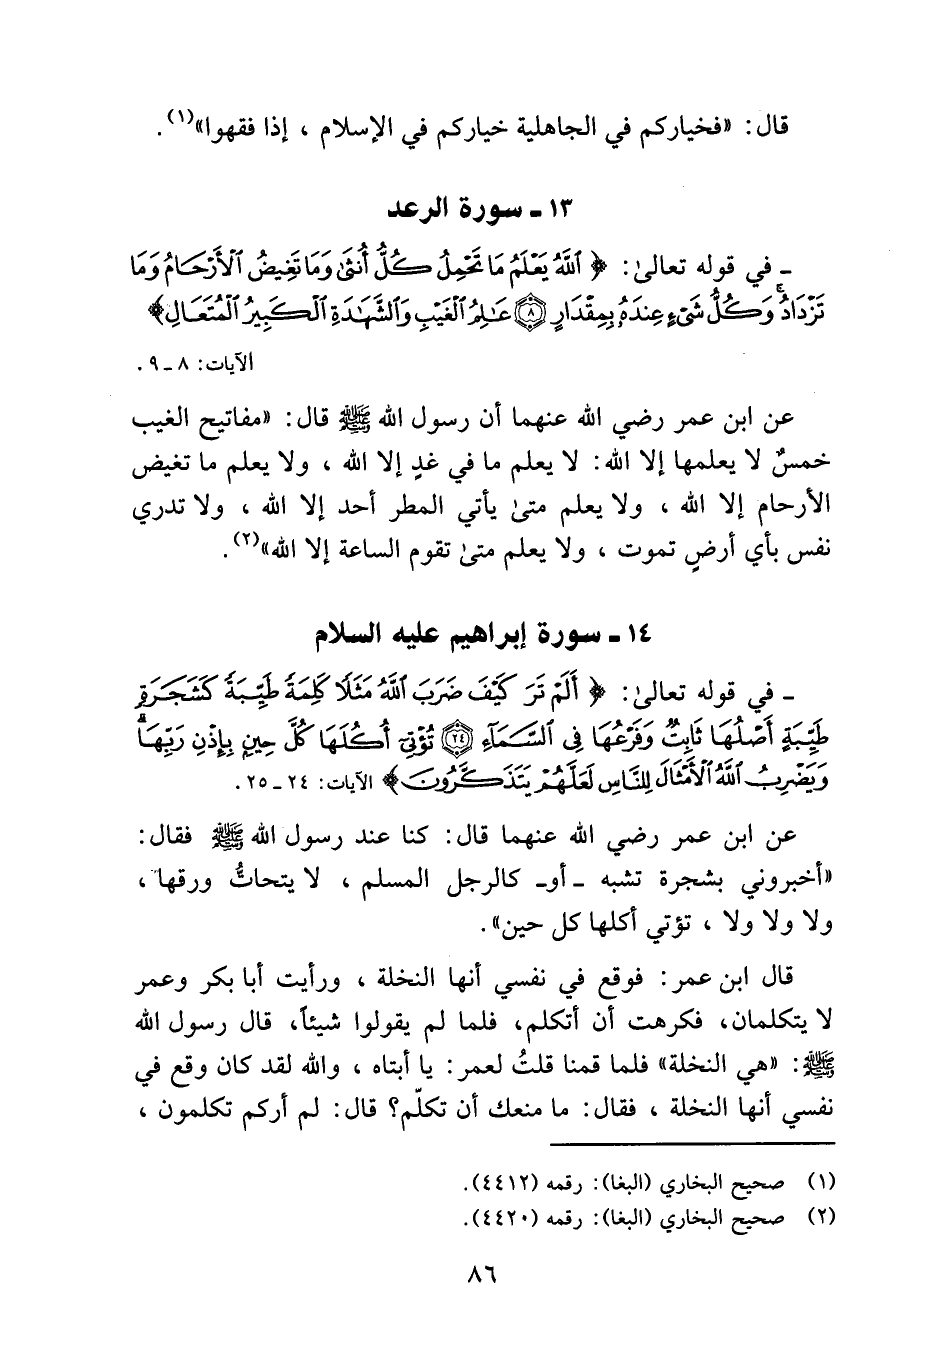 قال: «فخياركم في الجاهلية خياركم في الإسلام ، إذا فقهوا»(١) .
١٣ ـ سورة الرعد
ـ في قوله تعالىٰ: ﴿ ٱللَّهُ يَعْلَمُ مَا تَحْمِلُ كُلُّ أُنثَىٰ وَمَا تَغِيضُ ٱلْأَرْحَامُ وَمَا
تَزْدَادُ ۖ وَكُلُّ شَىْءٍ عِندَهُۥ بِمِقْدَارٍ ۝٨ عَـٰلِمُ ٱلْغَيْبِ وَٱلشَّهَـٰدَةِ ٱلْكَبِيرُ ٱلْمُتَعَالِ ﴾
الآيات: ٨ ـ ٩ .
عن ابن عمر رضي الله عنهما أن رسول الله ﷺ قال: «مفاتيح الغيب
خمسٌ لا يعلمها إلا الله: لا يعلم ما في غدٍ إلا الله ، ولا يعلم ما تغيض
الأرحام إلا الله ، ولا يعلم متىٰ يأتي المطر أحد إلا الله ، ولا تدري
نفس بأي أرضٍ تموت ، ولا يعلم متىٰ تقوم الساعة إلا الله»(٢) .
١٤ ـ سورة إبراهيم عليه السلام
ـ في قوله تعالىٰ: ﴿ أَلَمْ تَرَ كَيْفَ ضَرَبَ ٱللَّهُ مَثَلًا كَلِمَةً طَيِّبَةً كَشَجَرَةٍ
طَيِّبَةٍ أَصْلُهَا ثَابِتٌ وَفَرْعُهَا فِى ٱلسَّمَآءِ ۝٢٤ تُؤْتِىٓ أُكُلَهَا كُلَّ حِينٍۭ بِإِذْنِ رَبِّهَا ۗ
وَيَضْرِبُ ٱللَّهُ ٱلْأَمْثَالَ لِلنَّاسِ لَعَلَّهُمْ يَتَذَكَّرُونَ ﴾ الآيات: ٢٤ ـ ٢٥ .
عن ابن عمر رضي الله عنهما قال: كنا عند رسول الله ﷺ فقال:
«أخبروني بشجرة تشبه ـ أو ـ كالرجل المسلم ، لا يتحاتُّ ورقها ،
ولا ولا ولا ، تؤتي أكلها كل حين» .
قال ابن عمر: فوقع في نفسي أنها النخلة ، ورأيت أبا بكر وعمر
لا يتكلمان، فكرهت أن أتكلم، فلما لم يقولوا شيئاً، قال رسول الله
ﷺ: «هي النخلة» فلما قمنا قلتُ لعمر: يا أبتاه ، والله لقد كان وقع في
نفسي أنها النخلة ، فقال: ما منعك أن تكلّم؟ قال: لم أركم تكلمون ،
(١) صحيح البخاري (البغا): رقمه (٤٤١٢).
(٢) صحيح البخاري (البغا): رقمه (٤٤٢٠).
٨٦